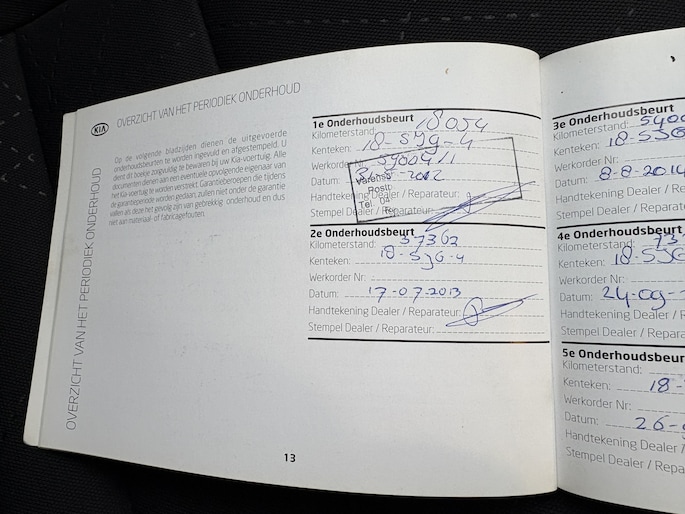 KIA OVERZICHT VAN HET PERIODIEK ONDERHOUD
OVERZICHT VAN HET PERIODIEK ONDERHOUD
Op de volgende bladzijden dienen de uitgevoerde
onderhoudsbeurten te worden ingevuld en afgestempeld. U
dient dit boekje zorgvuldig te bewaren bij uw Kia-voertuig. Alle
documenten dienen aan een eventuele opvolgende eigenaar van
het Kia-voertuig te worden verstrekt. Garantieberoepen die tijdens
de garantieperiode worden gedaan, zullen niet onder de garantie
vallen als deze het gevolg zijn van gebrekkig onderhoud en dus
niet aan materiaal- of fabricagefouten.
1e Onderhoudsbeurt
Kilometerstand: 18054
Kenteken: 18-SJG-4
Werkorder Nr:
Datum: 2012
Handtekening Dealer / Reparateur:
Stempel Dealer / Reparateur:
Tel. 04
2e Onderhoudsbeurt
Kilometerstand: 37362
Kenteken: 18-SJG-4
Werkorder Nr:
Datum: 17-07-2013
Handtekening Dealer / Reparateur:
Stempel Dealer / Reparateur:
13
3e Onderhoudsbeurt
Kilometerstand: 5400
Kenteken: 18-SJG
Werkorder Nr:
Datum: 8-8-2014
Handtekening Dealer / R
Stempel Dealer / Repara
4e Onderhoudsbeurt
Kilometerstand: 73
Kenteken: 18-SJG
Werkorder Nr:
Datum: 24-09-
Handtekening Dealer / F
Stempel Dealer / Repara
5e Onderhoudsbeur
Kilometerstand:
Kenteken: 18-
Werkorder Nr:
Datum: 26-
Handtekening Dealer /
Stempel Dealer / Repa